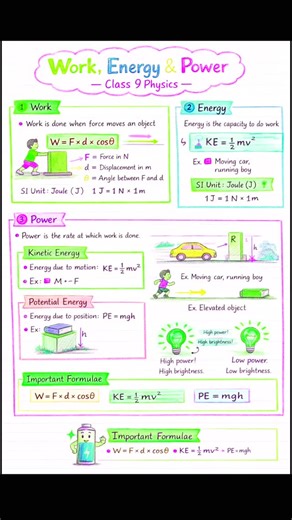 Work, Energy & Power
Class 9 Physics
① Work
• Work is done when force moves an object
W = F × d × cosθ
F = Force in N
d = Displacement in m
= Angle between F and d
SI Unit: Joule (J) 1 J = 1 N × 1m
② Energy
Energy is the capacity to do work
KE = ½ mv²
Ex. Moving car, running boy
SI Unit: Joule (J)
1 J = 1 N × 1m
③ Power
• Power is the rate at which work is done.
Kinetic Energy
• Energy due to motion: KE = ½ mv²
• Ex: M ← F
R
h
Ex. Moving car, running boy
Potential Energy
• Energy due to position: PE = mgh
• Ex:
h
Ex. Elevated object
High power?
High brightness?
High power!
High brightness.
Low power.
Low brightness.
Important Formulae
W = F × d × cosθ
KE = ½ mv²
PE = mgh
Important Formulae
• W = F × d × cosθ • KE = ½ mv² • PE = mgh